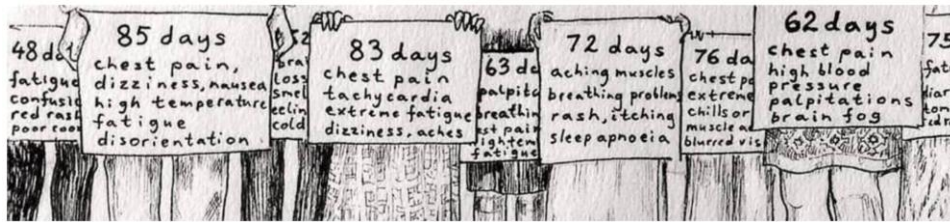 48 da
fatigue
confusio
red rash
poor coor
85 days
chest pain,
dizziness, nausea
high temperature
fatigue
disorientation
52
brai
loss
smel
eelin
cold
83 days
chest pain
tachycardia
extreme fatigue
dizziness, aches
63 da
palpita
breathin
est pain
ighten
fatigue
72 days
aching muscles
breathing problems
rash, itching
sleep apnoeia
76 da
chest pa
extreme
chills or
muscle a
blurred vis
62 days
chest pain
high blood
pressure
palpitations
brain fog
75
fat
diar
ton